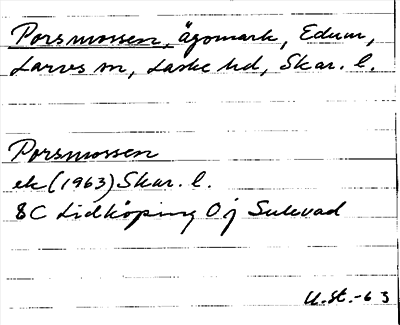 Porsmossen, ägomark, Edum,
Larvs sn, Laske hd, Skar. l.
Porsmossen
ek (1963) Skar. l.
8C Lidköping 0j Sulevad
U.St.-63